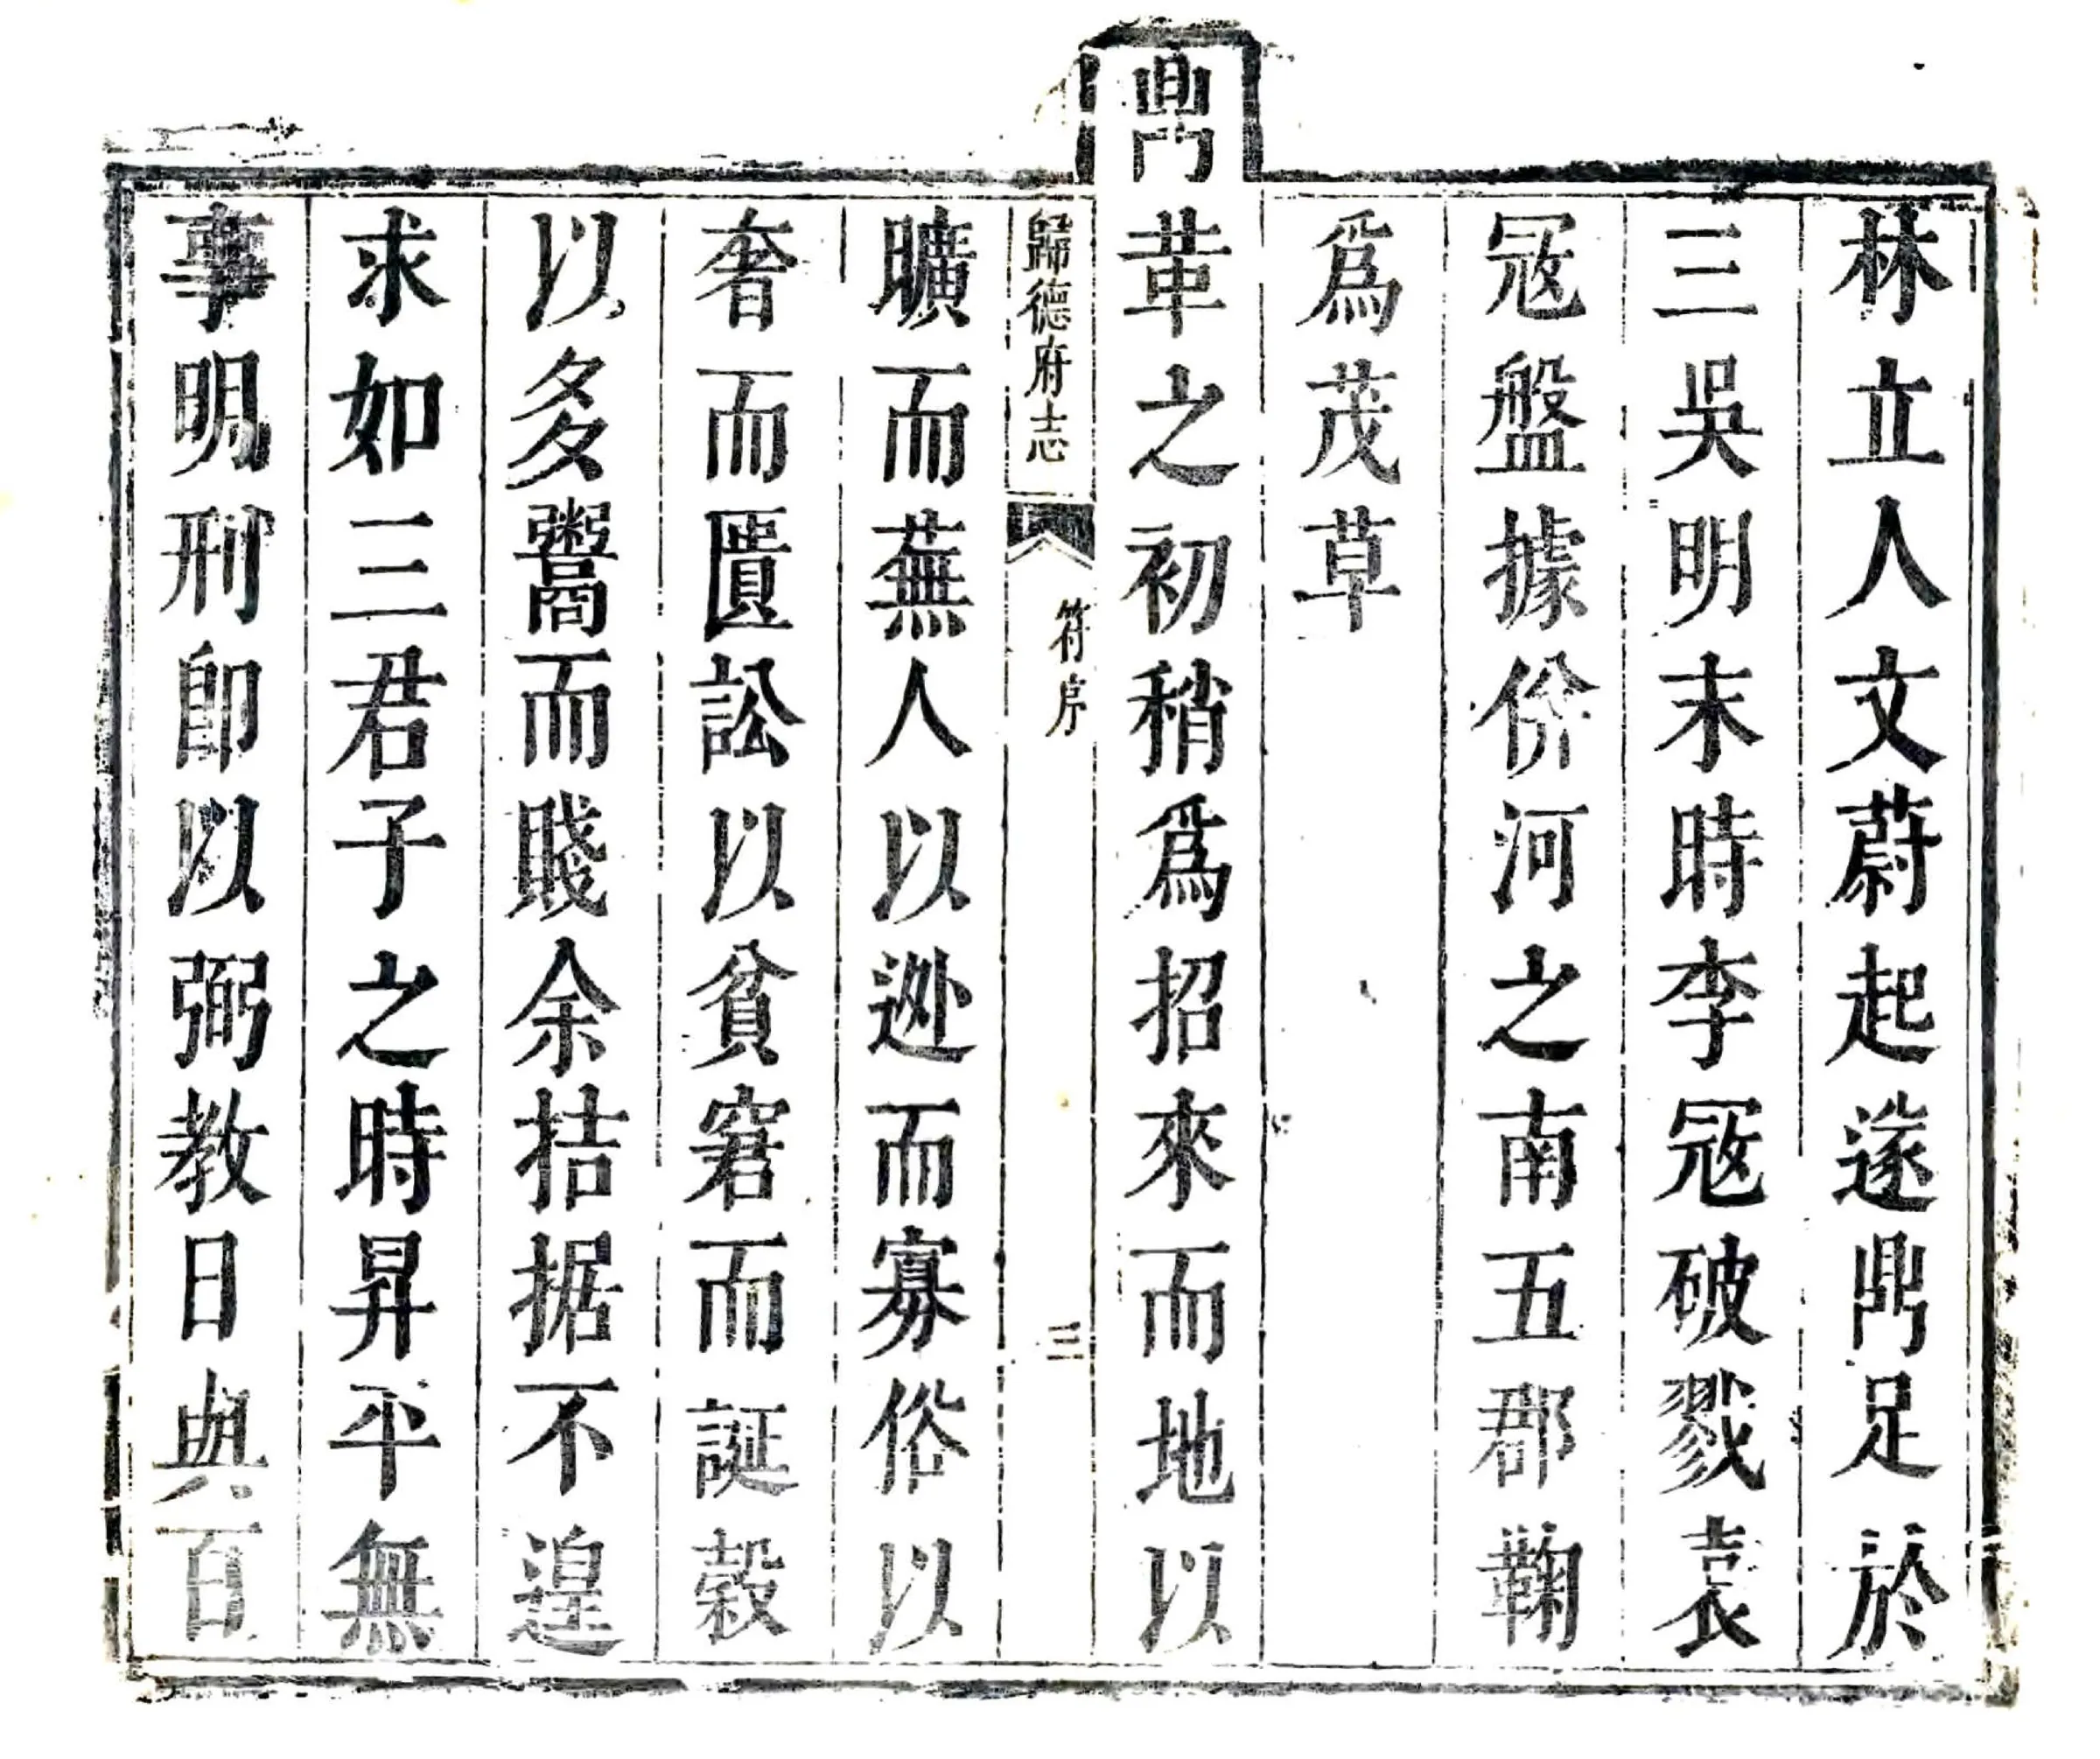 林立人文蔚起遂鼎足於
三吳明末時李冦破戮袁
冦盤據价河之南五郡鞠
爲茂草
鼎革之初稍爲招來而地以
歸德府志 符序 三
曠而蕪人以迯而寡俗以
奢而匱訟以貧窘而誕穀
以多鬻而賤余拮据不遑
求如三君子之時昇平無
事明刑卽以弼教日與百